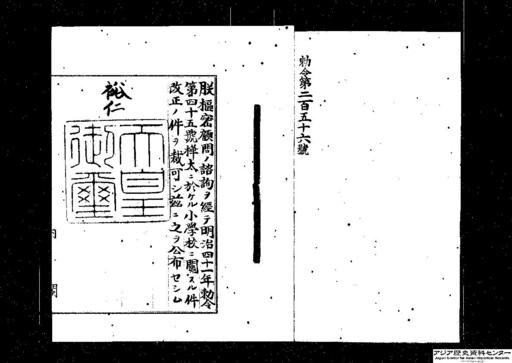 勅令第二百五十六號
朕樞密顧問ノ諮詢ヲ經テ明治四十一年勅令
第四十五號樺太ニ於ケル小學校ニ關スル件
改正ノ件ヲ裁可シ茲ニ之ヲ公布セシム
裕仁
天皇
御璽
内閣
アジア歴史資料センター
Japan Center for Asian Historical Records